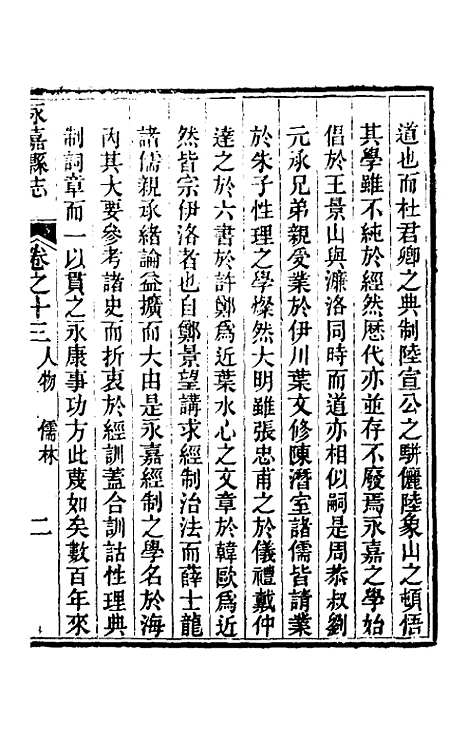 道也而杜君卿之典制陸宣公之駢儷陸象山之頓悟
其學雖不純於經然歴代亦並存不廢焉永嘉之學始
倡於王景山與濂洛同時而道亦相似嗣是周恭叔劉
元承兄弟親受業於伊川葉文修陳潛室諸儒皆請業
於朱子性理之學燦然大明雖張忠甫之於儀禮戴仲
達之於六書於許鄭爲近葉水心之文章於韓歐爲近
然皆宗伊洛者也自鄭景望講求經制治法而薛士龍
諸儒親承緒論益擴而大由是永嘉經制之學名於海
內其大要參考諸史而折衷於經訓蓋合訓詁性理典
制詞章而一以貫之永康事功方此蔑如矣數百年來
永嘉縣志 卷之十三 人物 儒林 二